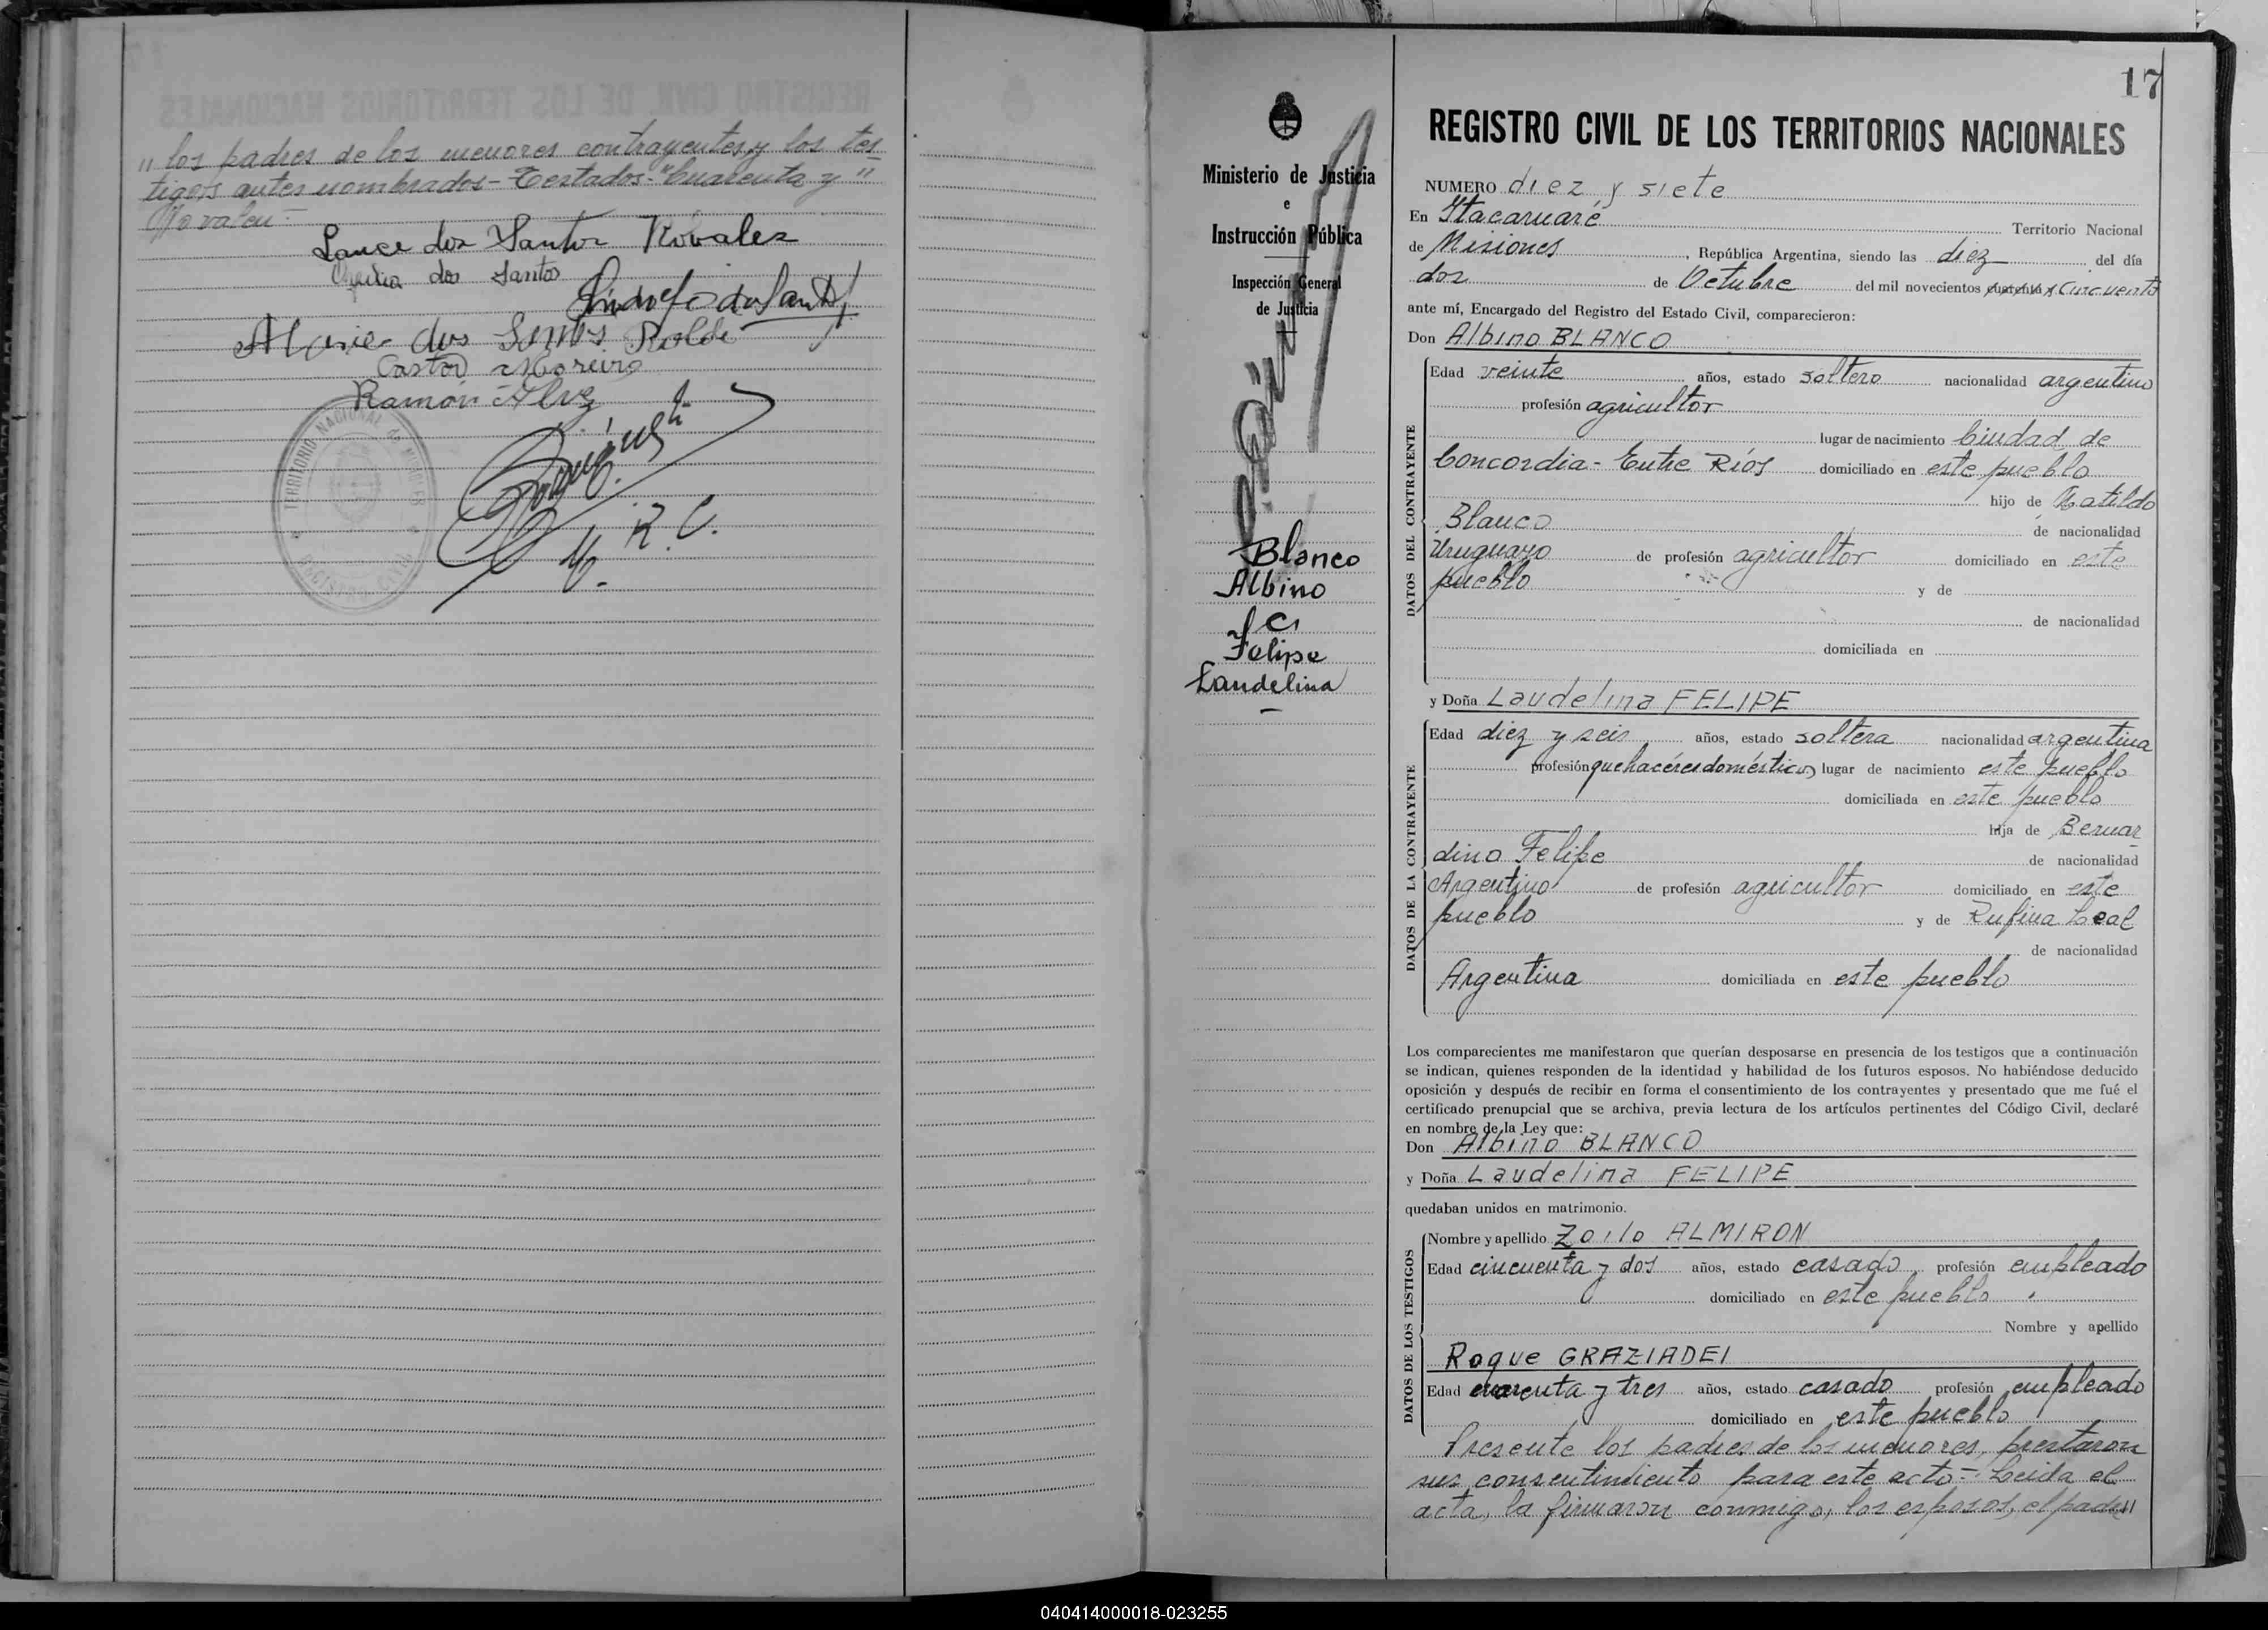 " los padres de los menores contrayentes y los tes-
tigos antes nombrados - Testados - "Cuarenta y "
No valen -
dos Santos
dos Santos
dos Santos
Castor Moreira
Ramón
R. C.
TERRITORIO NACIONAL de MISIONES
REGISTRO CIVIL
Ministerio de Justicia
e
Instrucción Pública
Inspección General
de Justicia
Blanco
Albino
c
Felipe
Laudelina
17
REGISTRO CIVIL DE LOS TERRITORIOS NACIONALES
NUMERO diez y siete
En Itacaruaré Territorio Nacional
de Misiones, República Argentina, siendo las diez del día
dos de Octubre del mil novecientos cuarenta y cincuenta
ante mí, Encargado del Registro del Estado Civil, comparecieron:
Don Albino BLANCO
DATOS DEL CONTRAYENTE
Edad veinte años, estado soltero nacionalidad argentino
profesión agricultor
lugar de nacimiento Ciudad de
Concordia - Entre Ríos domiciliado en este pueblo
hijo de Matildo
Blanco de nacionalidad
Uruguayo de profesión agricultor domiciliado en este
pueblo y de
de nacionalidad
domiciliada en
y Doña Laudelina FELIPE
DATOS DE LA CONTRAYENTE
Edad diez y seis años, estado soltera nacionalidad argentina
profesión quehacéres domésticos lugar de nacimiento este pueblo
domiciliada en este pueblo
hija de Bernar-
dino Felipe de nacionalidad
Argentino de profesión agricultor domiciliado en este
pueblo y de Rufina Leal
de nacionalidad
Argentina domiciliada en este pueblo
Los comparecientes me manifestaron que querían desposarse en presencia de los testigos que a continuación
se indican, quienes responden de la identidad y habilidad de los futuros esposos. No habiéndose deducido
oposición y después de recibir en forma el consentimiento de los contrayentes y presentado que me fué el
certificado prenupcial que se archiva, previa lectura de los artículos pertinentes del Código Civil, declaré
en nombre de la Ley que:
Don Albino BLANCO
y Doña Laudelina FELIPE
quedaban unidos en matrimonio.
DATOS DE LOS TESTIGOS
Nombre y apellido Zoilo ALMIRON
Edad cincuenta y dos años, estado casado profesión empleado
domiciliado en este pueblo
Nombre y apellido
Roque GRAZIADEI
Edad cuarenta y tres años, estado casado profesión empleado
domiciliado en este pueblo
Presente los padres de los menores, prestaron
sus consentimiento para este acto - Leida el
acta, la firmaron conmigo, los esposos, el padre "
040414000018-023255